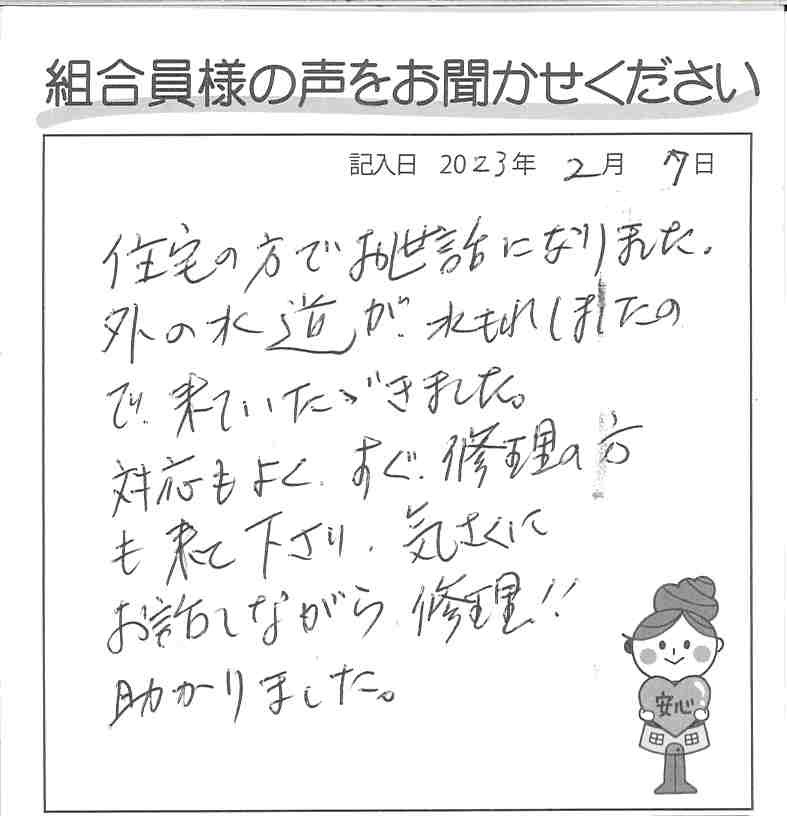 組合員様の声をお聞かせください
記入日 2023年 2月 7日
住宅の方でお世話になりました。
外の水道が、水もれしましたの
で、来ていただきました。
対応もよく、すぐ、修理の方
も来て下さり、気さくに
お話しながら、修理!!
助かりました。
安心